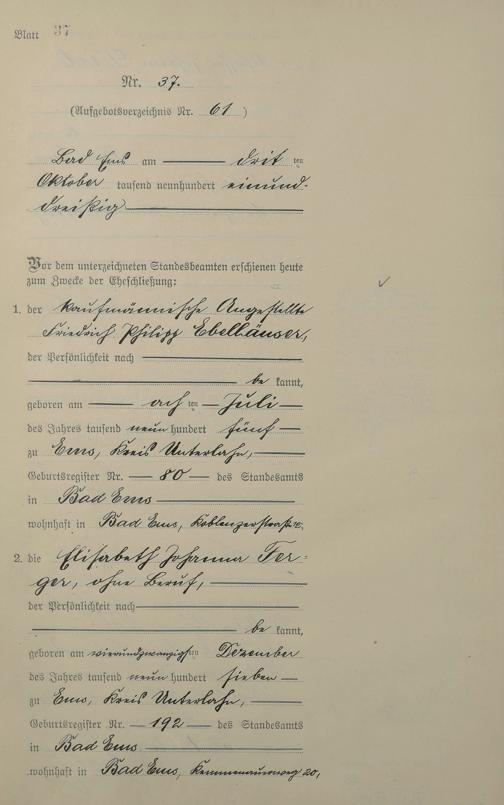 Blatt 37
Nr. 37.
(Aufgebotsverzeichnis Nr. 61 )
Bad Ems am drit ten
Oktober tausend neunhundert einund-
dreißig
Vor dem unterzeichneten Standesbeamten erschienen heute
zum Zwecke der Eheschließung:
1. der kaufmännische Angestellte
Friedrich Philipp Ebelhäuser,
der Persönlichkeit nach
be kannt,
geboren am ach ten Juli
des Jahres tausend neun hundert fünf
zu Ems, Kreis Unterlahn,
Geburtsregister Nr. 80 des Standesamts
in Bad Ems
wohnhaft in Bad Ems, Koblenzerstraße
2. die Elisabeth Johanna Fer-
ger, ohne Beruf,
der Persönlichkeit nach
be kannt,
geboren am vierundzwanzigsten Dezember
des Jahres tausend neun hundert sieben
zu Ems, Kreis Unterlahn,
Geburtsregister Nr. 192 des Standesamts
in Bad Ems
wohnhaft in Bad Ems, Kemmenauerweg 20,